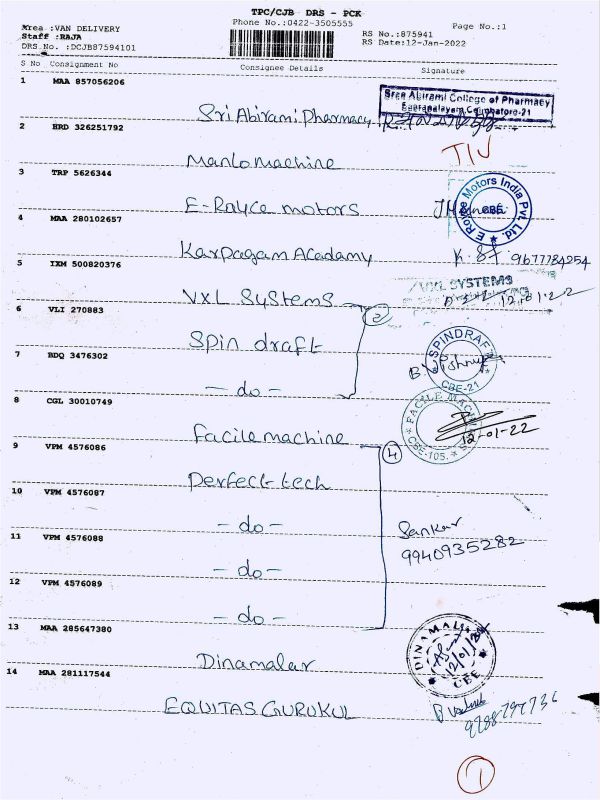 TPC/CJB DRS - PCK
Area :VAN DELIVERY
Phone No.:0422-3505555
Page No.:1
Staff :RAJA
RS No.:875941
DRS No. :DCJB87594101
RS Date:12-Jan-2022
S No Consignment No Consignee Details Signature
1 MAA 857056206
Sri Abirami Pharmacy
Sree Abirami College of Pharmacy
Eearapalayam, Coimbatore-21
2 HRD 326251792
Manlo machine
TIV
3 TRP 5626344
E-Royce motors
E Royce Motors India Pvt. Ltd.
CBE
4 MAA 280102657
Karpagam Academy
9677784254
5 IXM 500820376
VXL Systems
VXL SYSTEMS
12.01.22
6 VLI 270883
2
Spin draft
SPINDRAFT
CBE-21
7 BDQ 3476302
- do -
8 CGL 30010749
Facile machine
FACILE MAC
CBE-105.
12-01-22
9 VPM 4576086
4
Perfect-tech
10 VPM 4576087
- do -
Sankar
9940935282
11 VPM 4576088
- do -
12 VPM 4576089
- do -
13 MAA 285647380
Dinamalar
DINAMALAR
12/01/22
CBE
14 MAA 281117544
EQUITAS GURUKUL
1